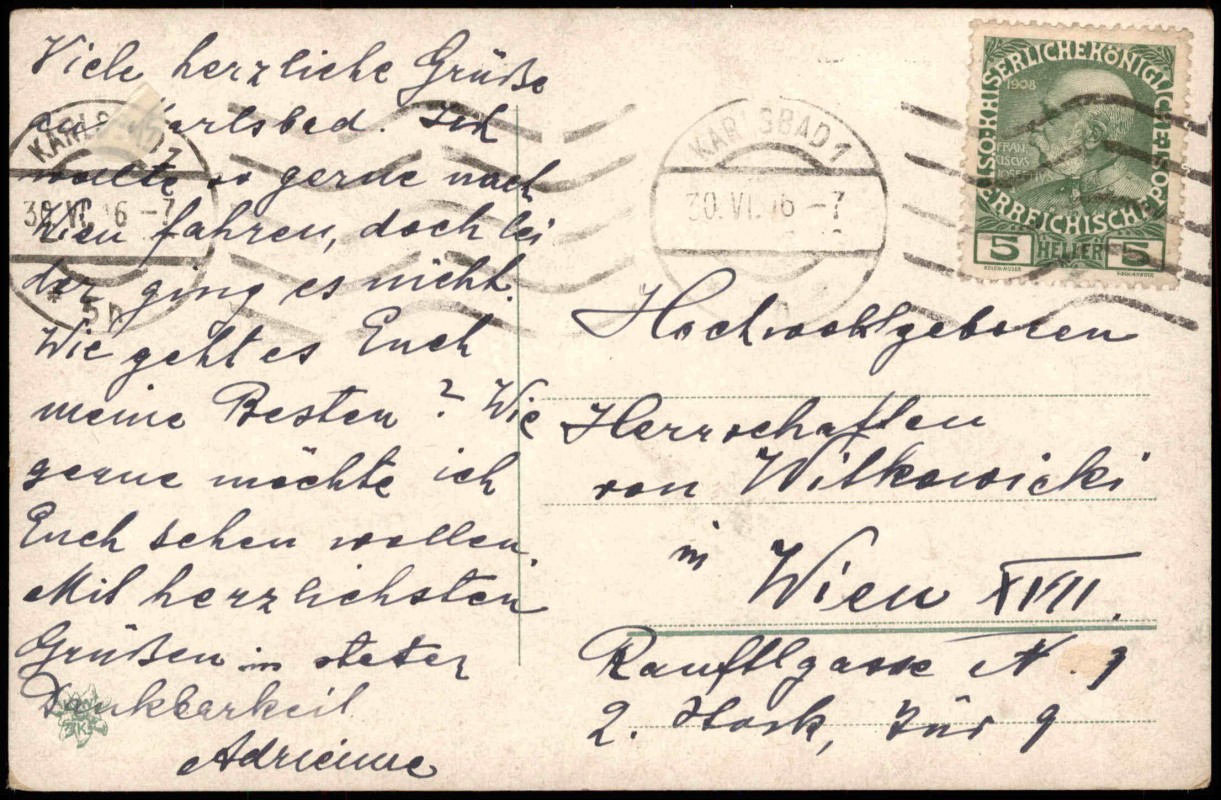 Viele herzliche Grüße
aus Karlsbad. Ich
wollte so gerne nach
Wien fahren, doch lei
der ging es nicht.
Wie geht es Euch
meine Besten? Wie
gerne möchte ich
Euch sehen wollen.
Mit herzlichsten
Grüßen in steter
Dankbarkeit
Adrienne
KARLSBAD 1
30. VI. 16 - 7
KARLSBAD 1
30. VI. 16 - 7
KAISERLICHEKÖNIGLICHE
ÖSTERREICHISCHE POST
1908
FRAN
CISCVS
JOSEPHVS
5 HELLER 5
Hochwohlgeboren
Herrschaften
von Witkowicki
in Wien XVII.
Rauftlgasse N. 9
2. Stock, Tür 9